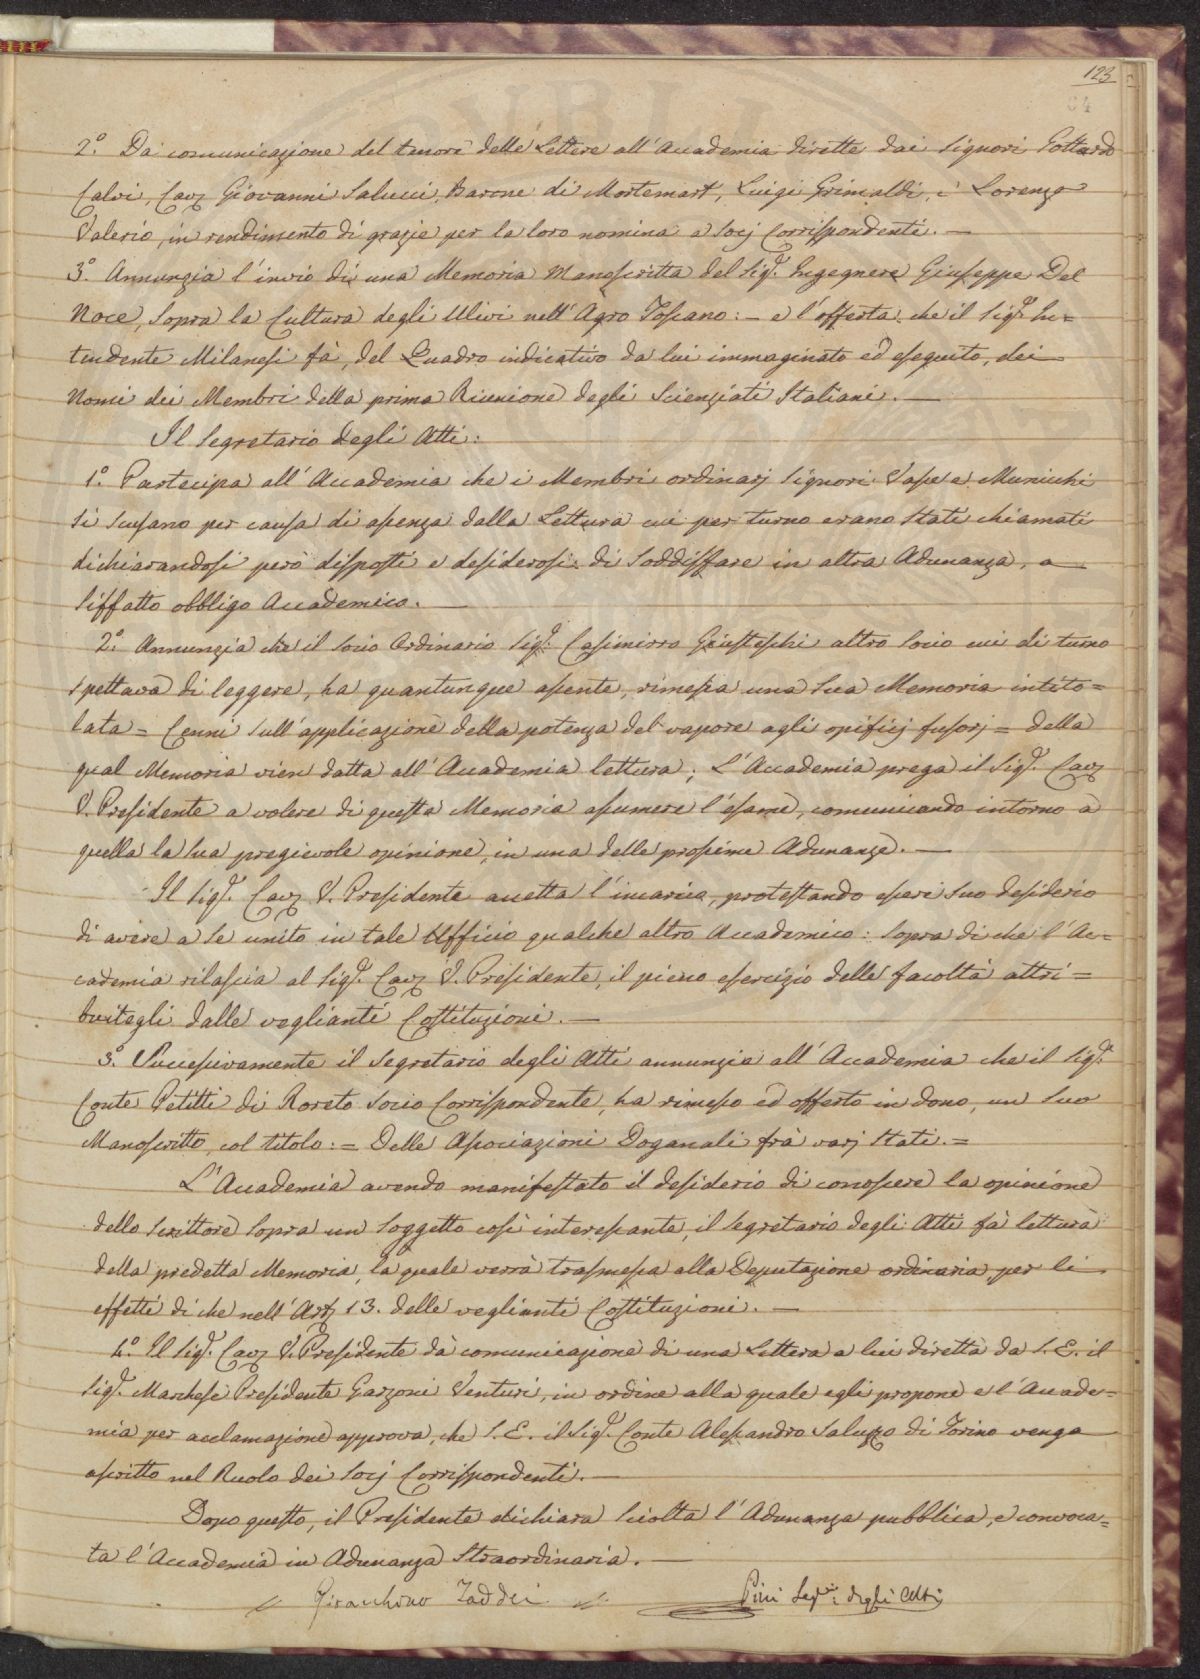 123
64
2.° Dà comunicazione del tenore delle Lettere all'Accademia dirette dai Signori Gottardo
Calvi, Cav. Giovanni Salucci, Barone di Mortemart, Luigi Grimaldi, e Lorenzo
Valerio, in rendimento di grazie per la loro nomina a Socj Corrispondenti. —
3.° Annunzia l'invio di una Memoria Manoscritta del Sig.r Ingegnere Giuseppe Del
Noce, sopra la Cultura degli Ulivi nell'Agro Toscano: — e l'offerta che il Sig.r In=
tendente Milanesi fà, del Quadro indicativo da lui immaginato ed eseguito, dei
Nomi dei Membri della prima Riunione degli Scienziati Italiani. —
Il Segretario degli Atti:
1.° Partecipa all'Accademia che i Membri ordinarj Signori Vaso e Municchi
si scusano per causa di assenza dalla Lettura cui per turno erano stati chiamati
dichiarandosi però disposti e desiderosi di soddisfare in altra Adunanza, a
siffatto obbligo Accademico. —
2.° Annunzia che il Socio Ordinario Sig.r Casimirro Giusteschi altro Socio cui di turno
spettava di leggere, ha quantunque assente, rimessa una sua Memoria intito=
lata = Cenni sull'applicazione della potenza del vapore agli opificj fusorj = della
qual Memoria vien datta all'Accademia lettura; L'Accademia prega il Sig.r Cav.
V. Presidente a volere di questa Memoria assumere l'esame, comunicando intorno a
quella la sua pregievole opinione, in una delle prossime Adunanze. —
Il Sig.r Cav. V. Presidente accetta l'incarico, protestando esser suo desiderio
di avere a se unito in tale Ufficio qualche altro Accademico: sopra di che l'Ac=
cademia rilascia al Sig.r Cav. V. Presidente, il pieno esercizio delle facoltà attri=
buitegli dalle veglianti Costituzioni. —
3.° Successivamente il Segretario degli Atti annunzia all'Accademia che il Sig.r
Conte Petitti di Roreto Socio Corrispondente, ha rimesso ed offerto in dono, un suo
Manoscritto, col titolo: = Delle Associazioni Doganali frà varj Stati. =
L'Accademia avendo manifestato il desiderio di conoscere la opinione
dello scrittore sopra un soggetto così interessante, il Segretario degli Atti fà lettura
della predetta Memoria, la quale verrà trasmessa alla Deputazione ordinaria per li
effetti di che nell'Art. 13. delle veglianti Costituzioni. —
4.° Il Sig.r Cav. V. Presidente dà comunicazione di una Lettera a lui diretta da S. E. il
Sig.r Marchese Presidente Garzoni Venturi, in ordine alla quale egli propone e l'Accade=
mia per acclamazione approva, che S. E. il Sig.r Conte Alessandro Saluzzo di Torino venga
ascritto nel Ruolo dei Socj Corrispondenti. —
Dopo questo, il Presidente dichiara sciolta l'Adunanza pubblica, e convoca=
ta l'Accademia in Adunanza Straordinaria. —
Gioacchino Taddei
Pini Seg.rio degli Atti